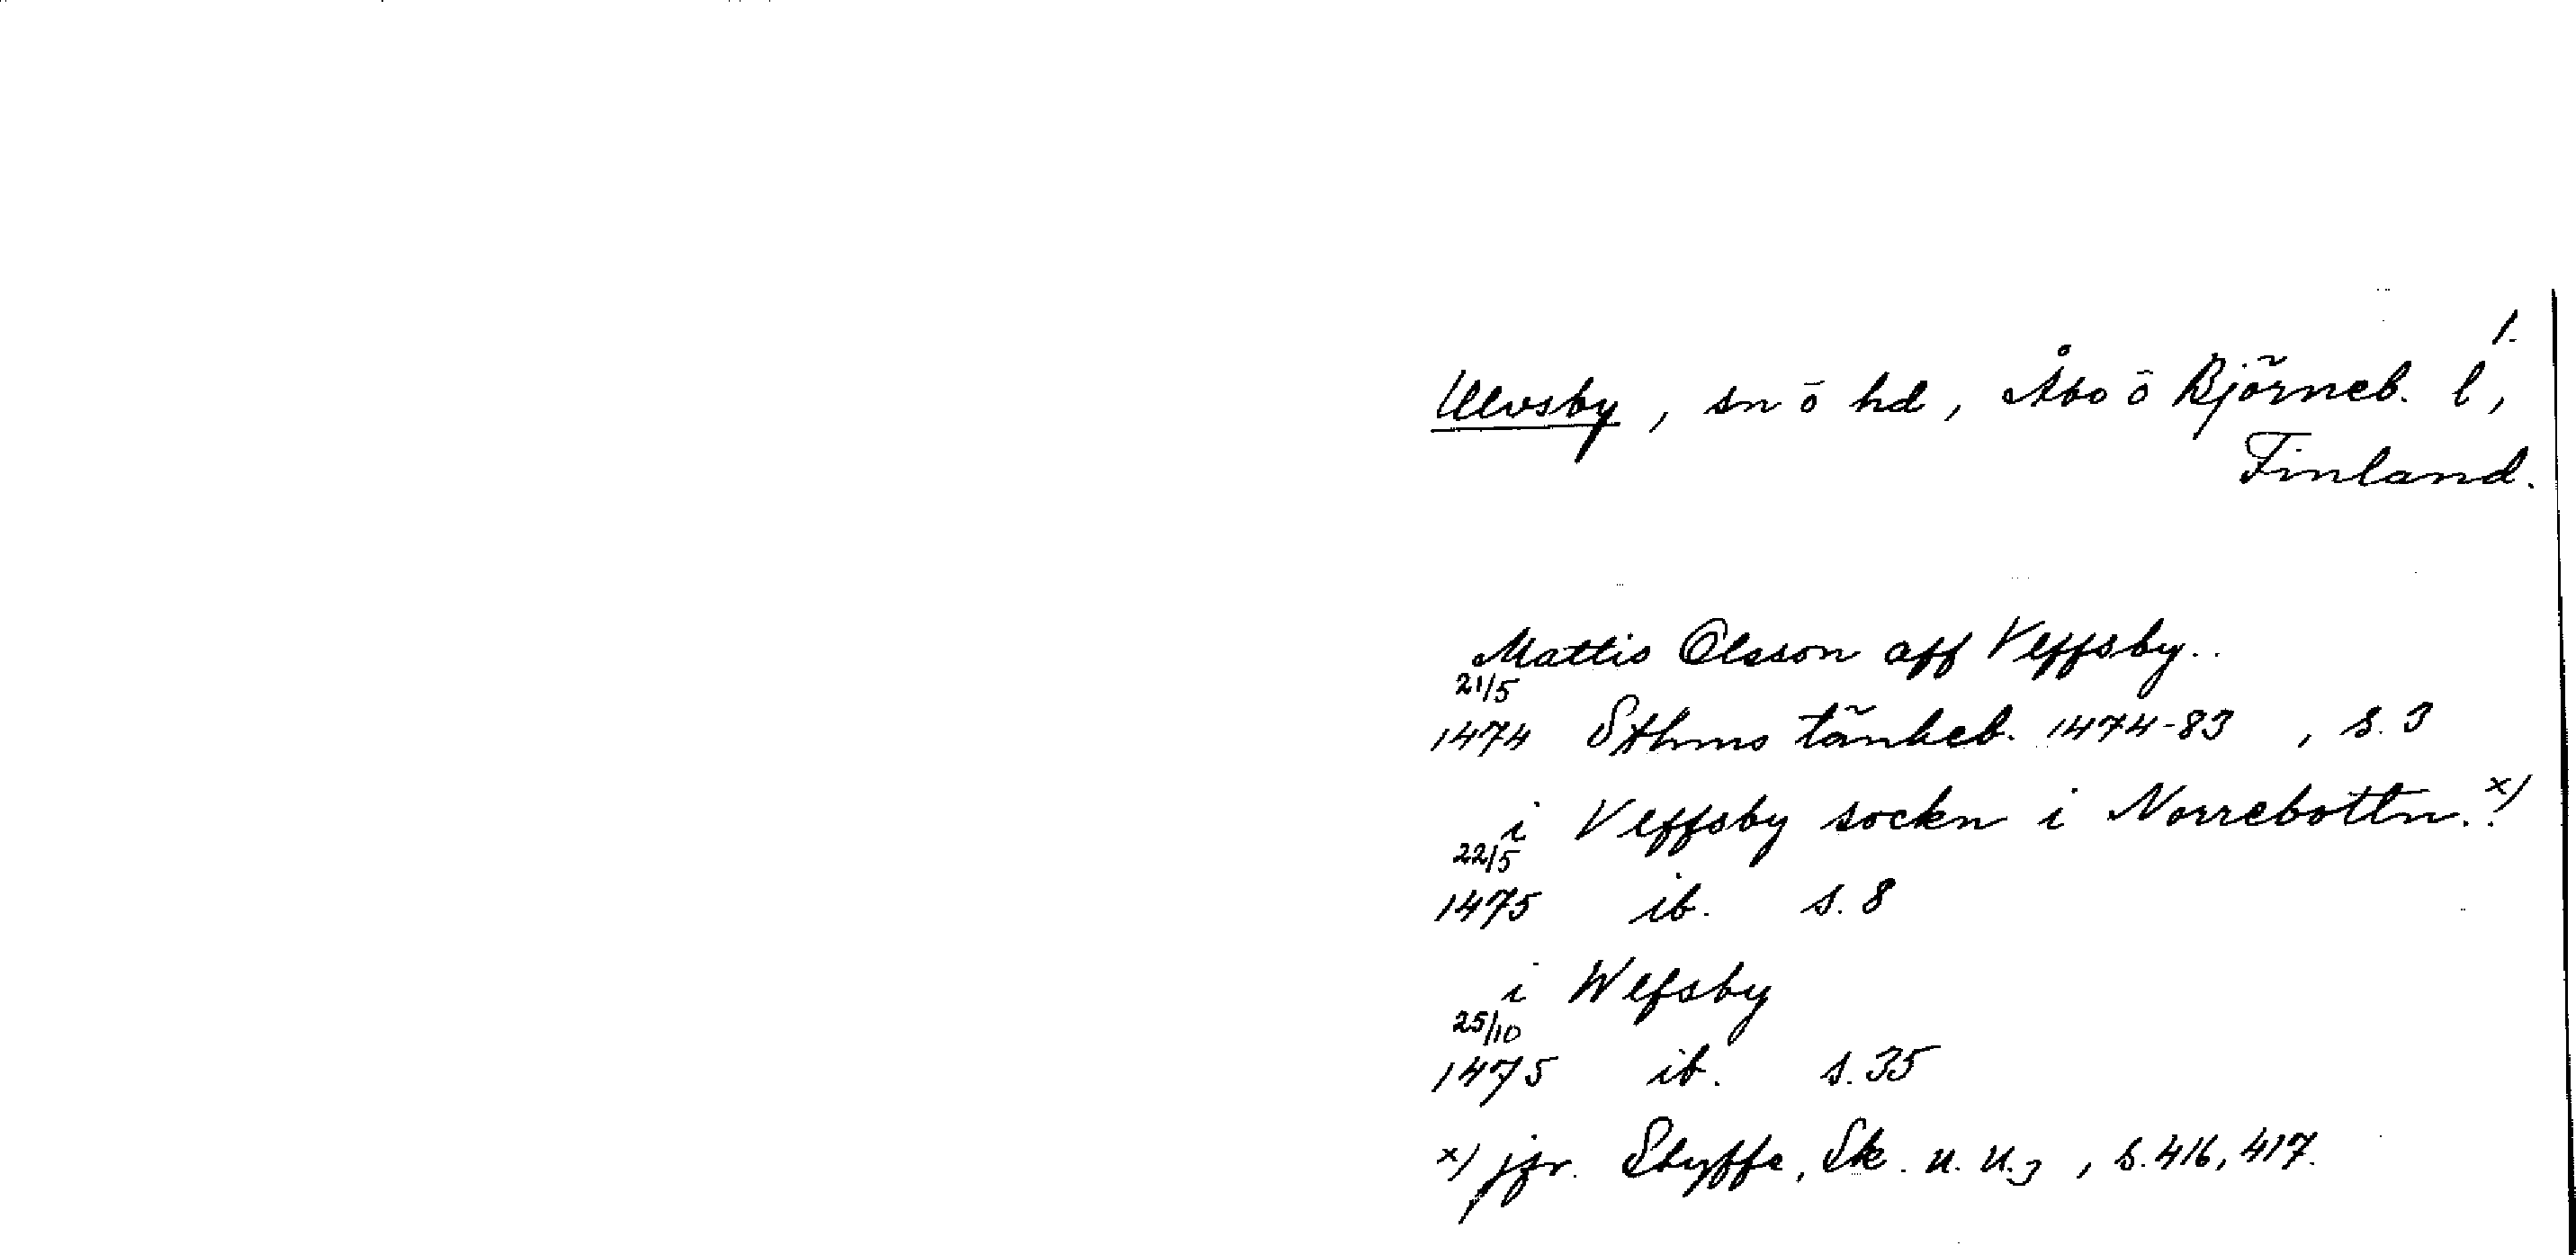 1.
Ulvsby, sn o hd, Åbo o Björneb. l,
Finland.
Mattis Olsson aff Vlffsby..
21/5
1474 Sthms tänkeb. 1474-83, s. 3
i Vlffsby sockn i Norrebottn..x)
22/5
1475 ib. s. 8
i Wlfsby
25/10
1475 ib. s. 35
x) jfr. Styffe, Sk. u. u.3, s. 416, 417.